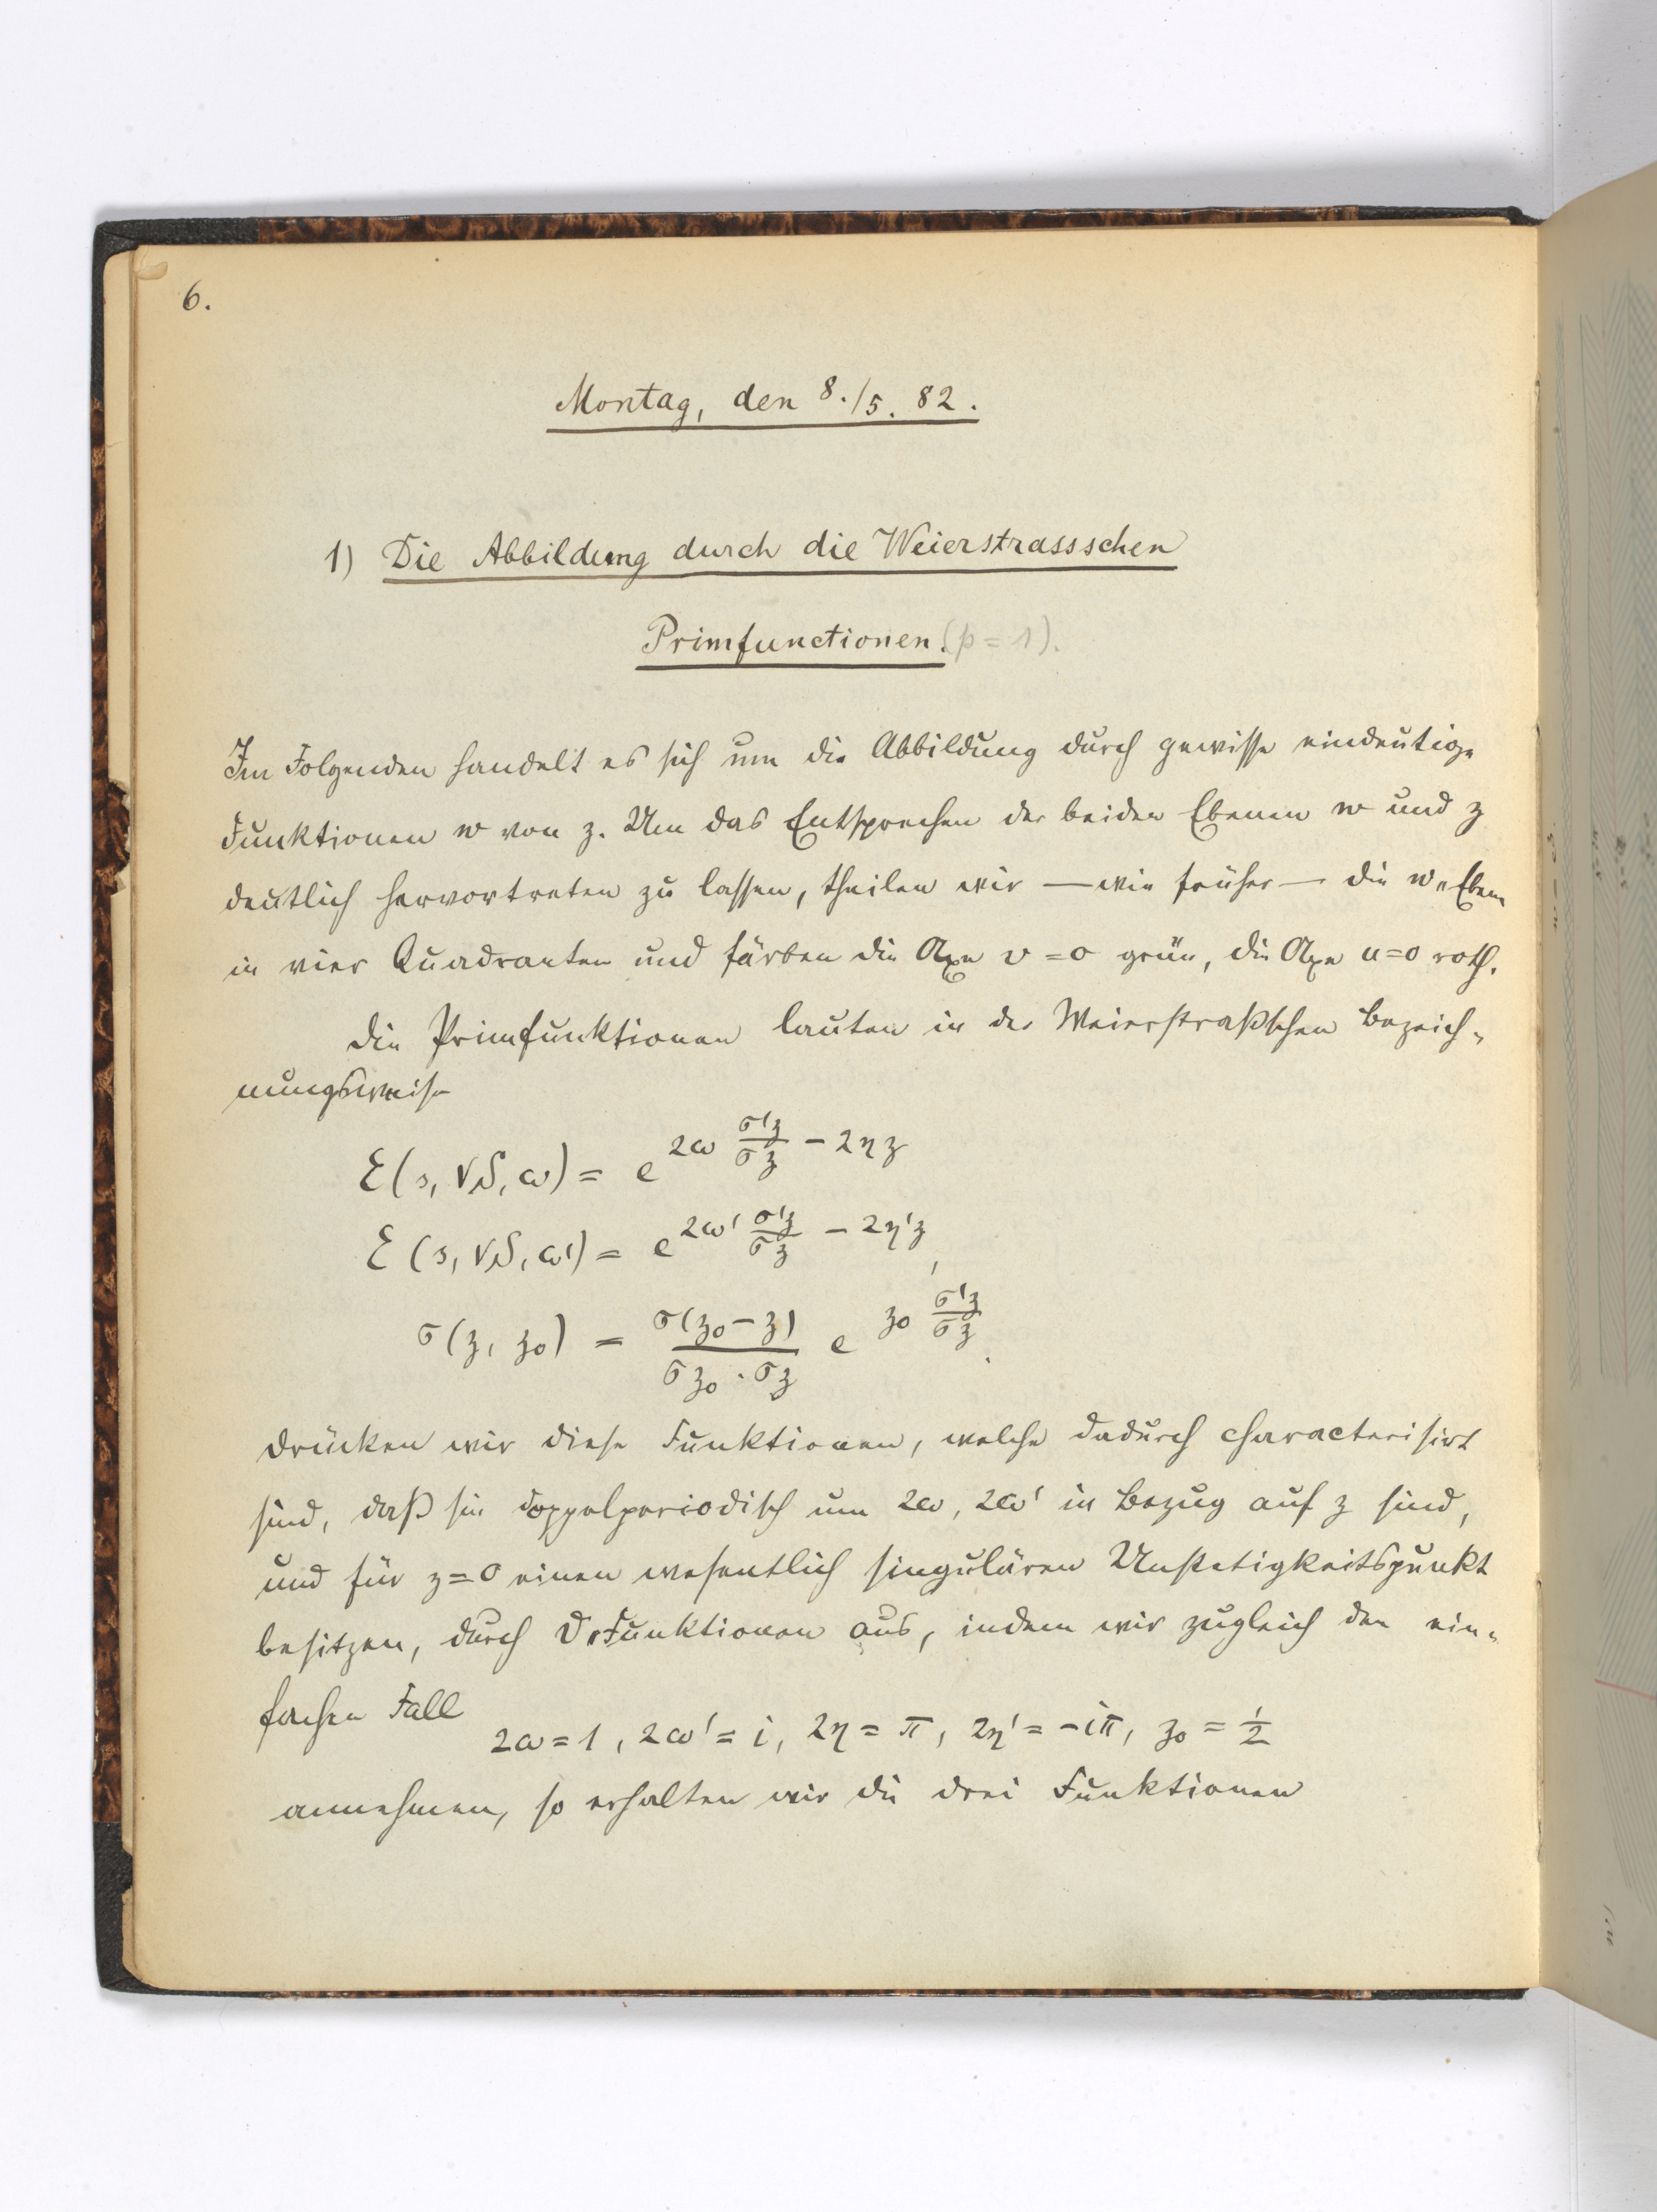 6.
Montag, den 8./5. 82.
1) Die Abbildung durch die Weierstrassschen
Primfunctionen. (p = 1).
Im Folgenden handelt es sich um die Abbildung durch gewisse eindeutige
Funktionen w von z. Um das Entsprechen der beiden Ebenen w und z
deutlich hervortreten zu lassen, theilen wir — wie früher — die w-Ebene
in vier Quadranten und färben die Axe v = 0 grün, die Axe u = 0 roth.
Die Primfunktionen lauten in der Weierstraßschen Bezeich-
nungsweise
E(s, √S, ω) = e^{2ω σ'z/σz − 2ηz}
E(s, √S, ω') = e^{2ω' σ'z/σz − 2η'z},
σ(z, z₀) = σ(z₀ − z)/(σz₀ · σz) e^{z₀ σ'z/σz}.
Drücken wir diese Funktionen, welche dadurch characterisirt
sind, daß sie doppelperiodisch um 2ω, 2ω' in Bezug auf z sind,
und für z = 0 einen wesentlich singulären Unstetigkeitspunkt
besitzen, durch ϑ-Funktionen aus, indem wir zugleich den ein-
fachen Fall
2ω = 1, 2ω' = i, 2η = π, 2η' = −iπ, z₀ = 1/2
annehmen, so erhalten wir die drei Funktionen